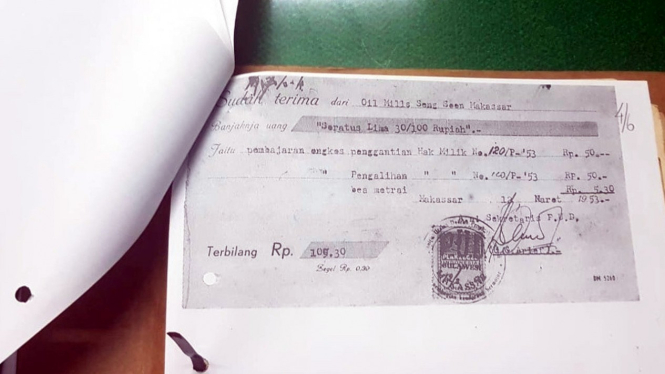 Sudah terima dari Oil Mills Seng Goan Makassar
4/6
Banjaknja uang "Seratus Lima 30/100 Rupiah".-
Jaitu pembajaran ongkos penggantian Hak Milik No. 120/P-'53 Rp. 50.--
Pengalihan " " No. 120/P-'53 RP. 50.-
bea metrai Rp. 5.30
Makassar 12 Maret 1953.-
Sekretaris P.E.D.
Terbilang Rp. 105,30
Segel Rp. 0,30